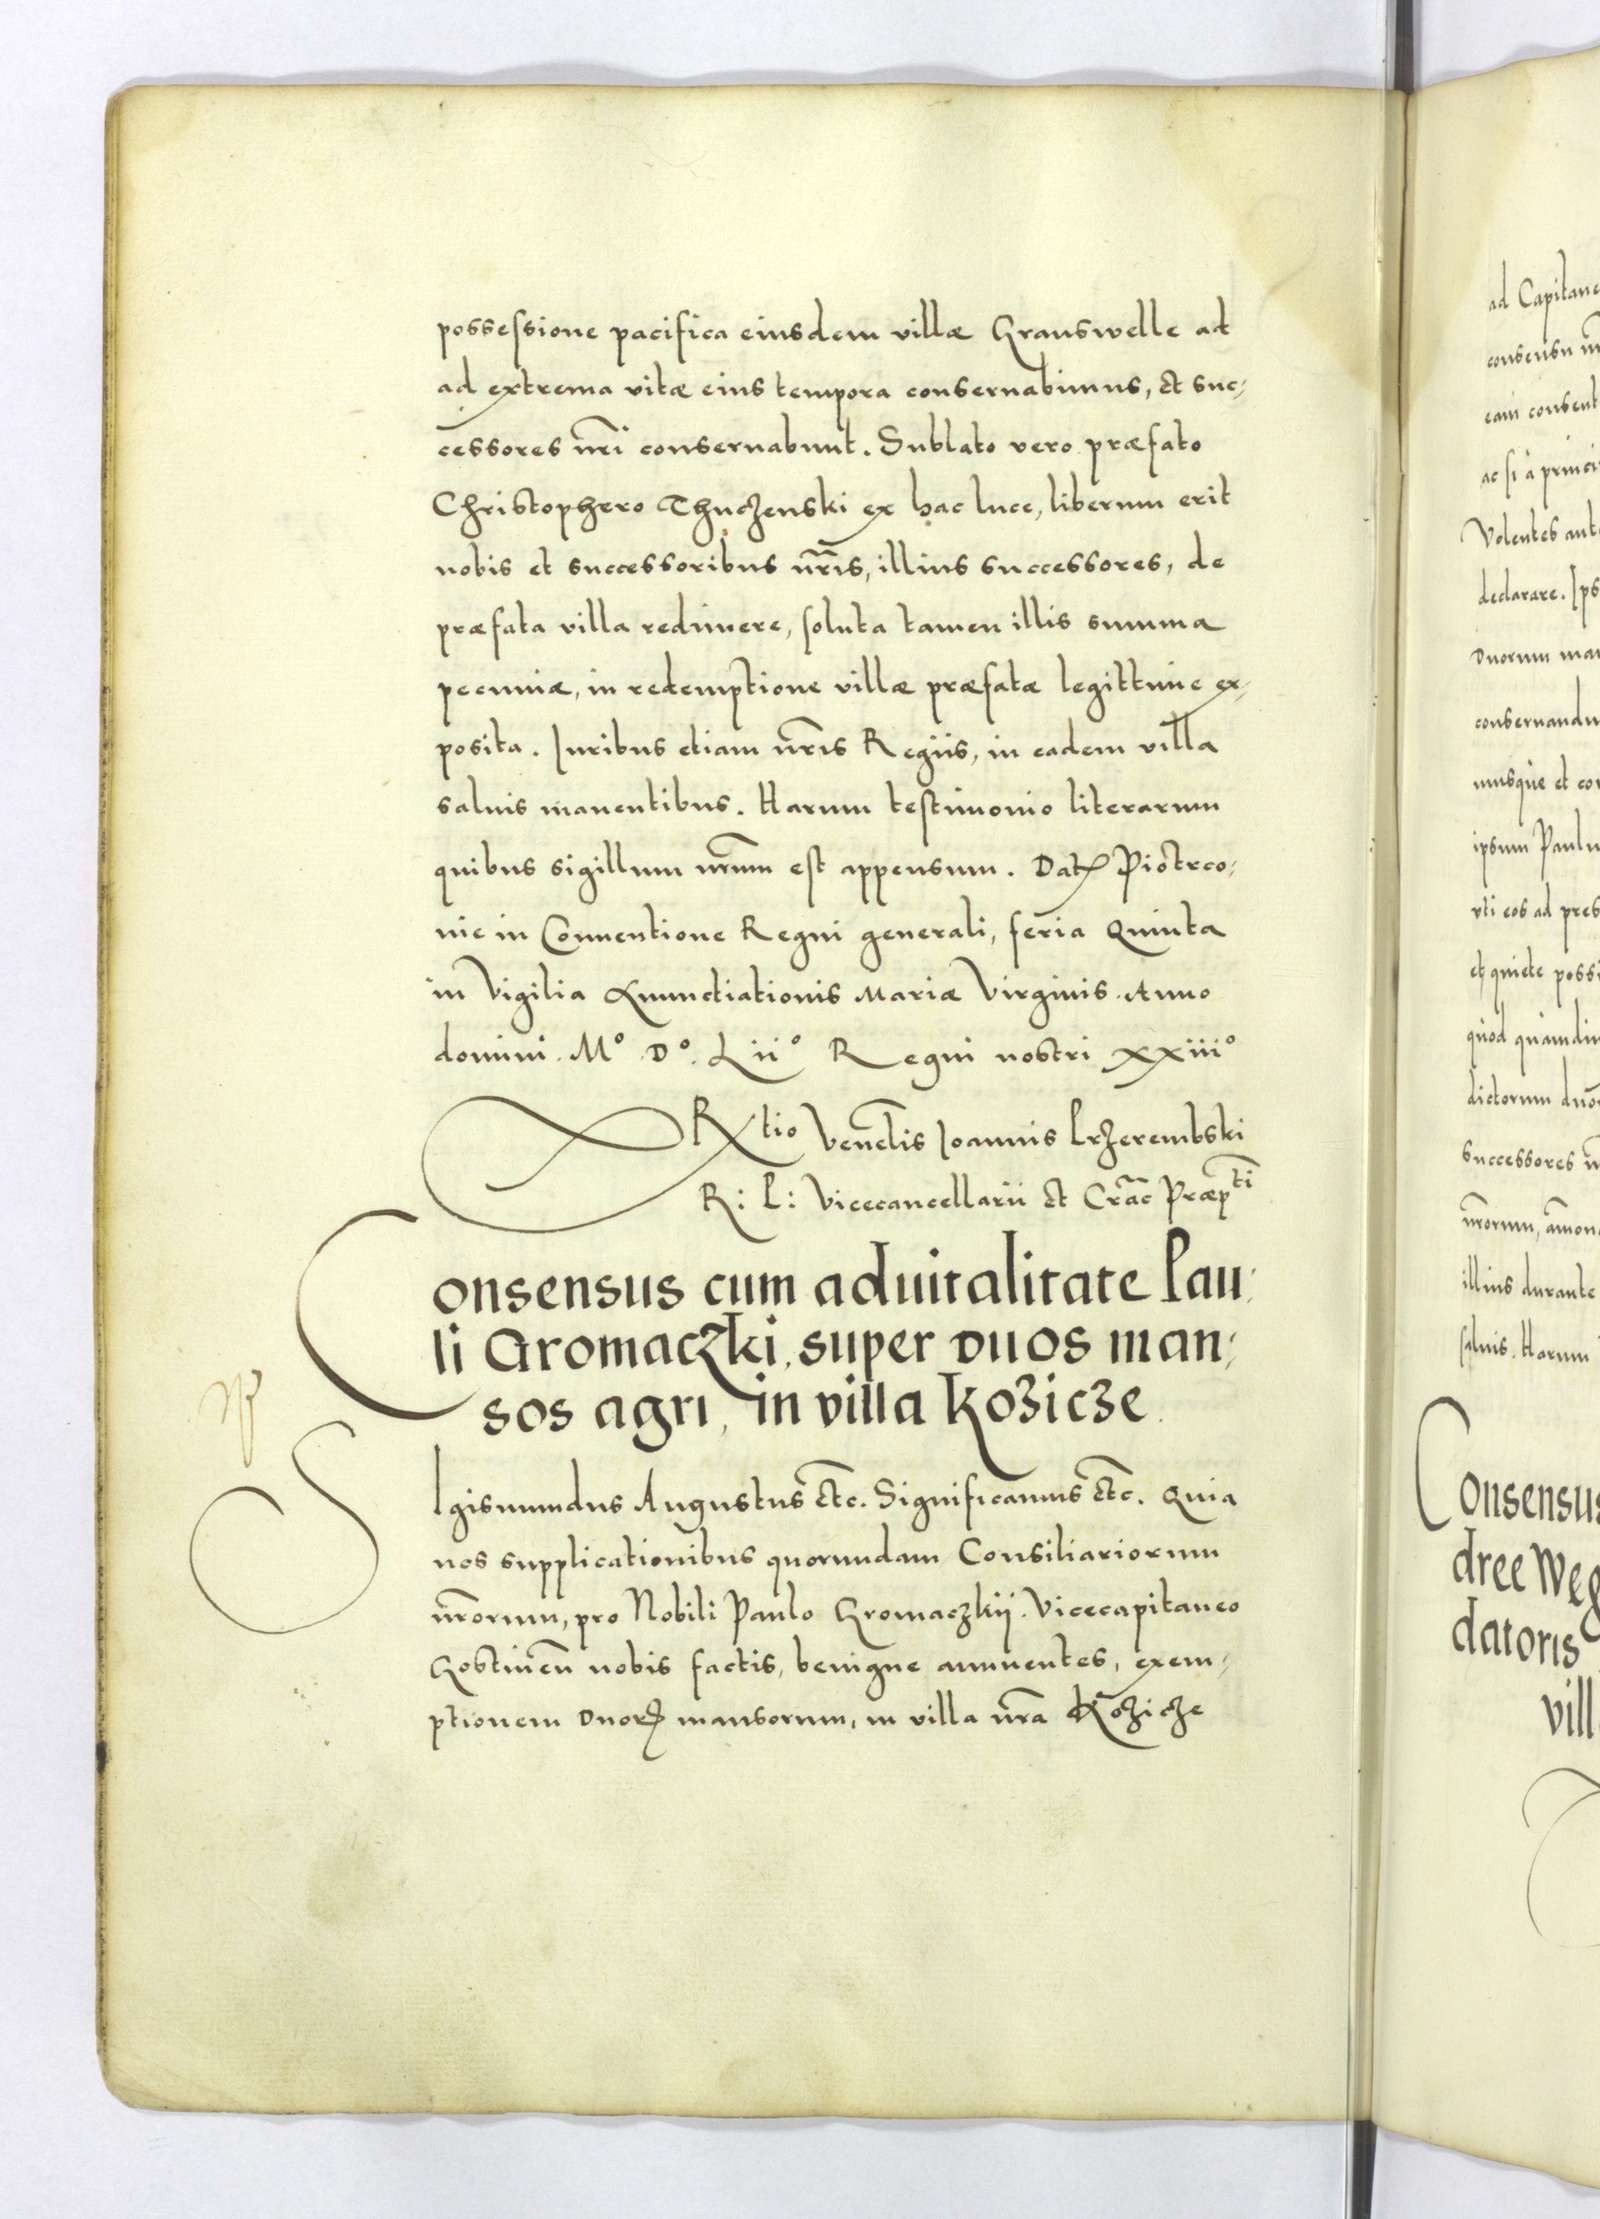 possessione pacifica eiusdem villæ Grauswelle ad
ad extrema vitæ eius tempora conseruabimus, et suc-
cessores nr̃i conseruabunt. Sublato vero præfato
Christophero Thuczenski ex hac luce, liberum erit
nobis et successoribus nr̃is, illius successores, de
præfata villa redimere, soluta tamen illis summa
pecuniæ, in redemptione villæ præfatæ legittime ex-
posita. Iuribus etiam nr̃is Regiis, in eadem villa
saluis manentibus. Harum testimonio literarum
quibus sigillum nr̃um est appensum. Datꝭ Piotrco-
nie in Conuentione Regni generali, feria Quinta
in Vigilia Anunctiationis Mariæ Virginis. Anno
domini. Mº. Dº. Liiº Regni nostri xxiiiº
Rtio Venêlis Ioannis Przerembski
R: P: Vicecancellarii et Crãc Præpti
Consensus cum aduitalitate Pau-
li Gromaczki, super duos man-
sos agri, in villa Kozicze.
SIgismundus Augustus etc̃. Significamus etc̃. Quia
nos supplicationibus quorundam Consiliariorum
nr̃orum, pro Nobili Paulo Gromaczkij. Vicecapitaneo
Gostineñ nobis factis, benigne annuentes, exem-
ptionem duorꝭ mansorum, in villa nr̃a Koziche
ad Capitane
consensu nr̃
eam consent
ac si à princi
Volentes aut
declarare. Ips
Duorum man
conseruandu
musque et con
ipsum Paulu
vti eos ad pres
et quiete possi
quod quamdiu
dictorum duor
successores n
nr̃orum, amon
illius durante
saluis. Harum
Consensus
dree Weg
datoris
vill